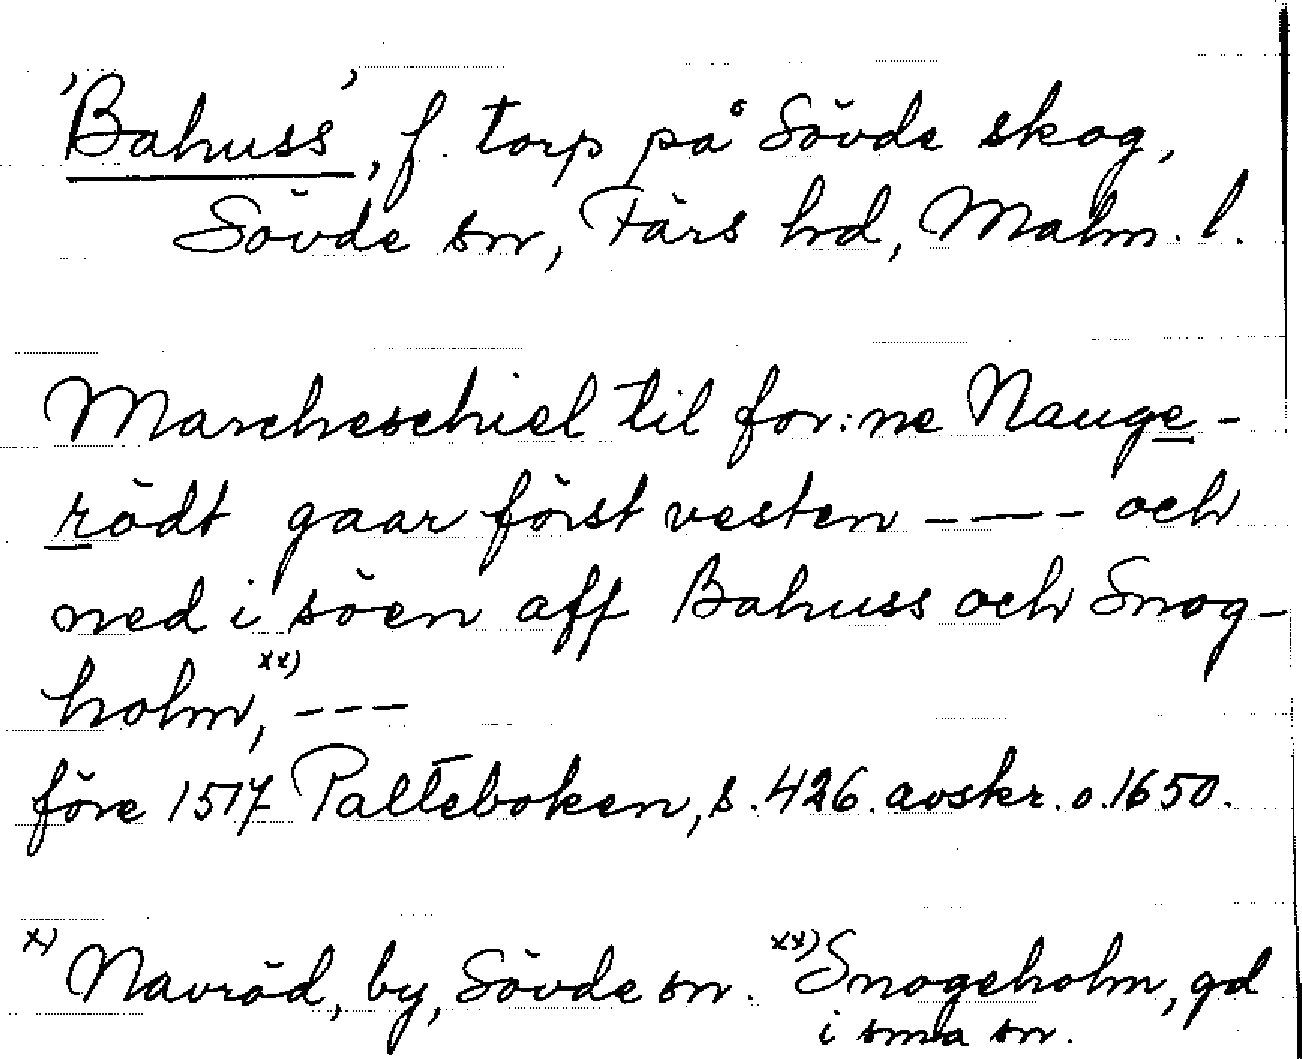 'Bahuss', f. torp på Sövde skog,
Sövde sn, Färs hd, Malm. l.
Marcheschiel til for:ne Nauge-
rödt gaar först vesten - — - och
ned i söen aff Bahuss och Snog-
holm,xx) ---
före 1517 Palteboken, s. 426. avskr. o. 1650.
x) Navröd, by, Sövde sn. xx) Snogeholm, gd
i sma sn.